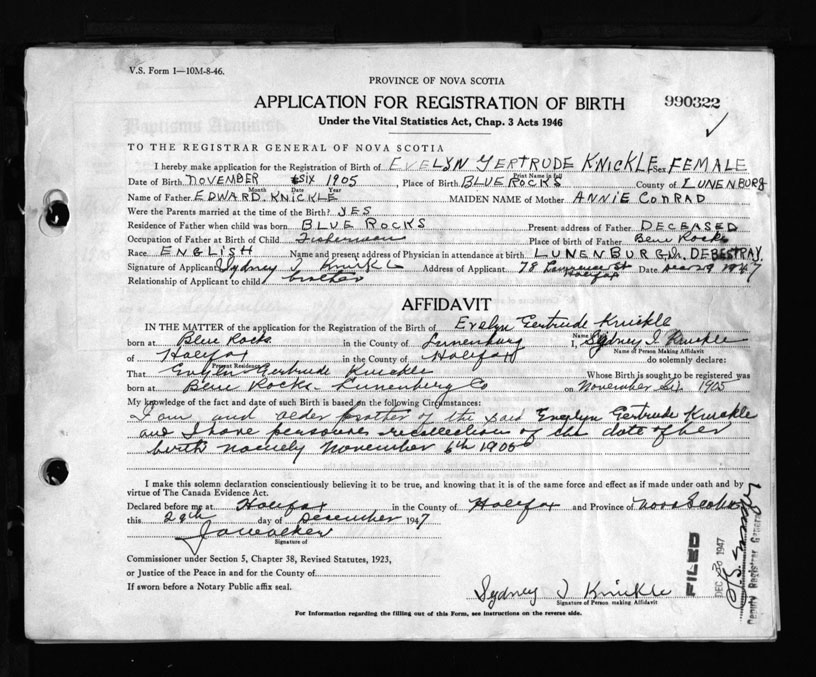 V.S. Form 1—10M-8-46.
PROVINCE OF NOVA SCOTIA
APPLICATION FOR REGISTRATION OF BIRTH 990322
Under the Vital Statistics Act, Chap. 3 Acts 1946
TO THE REGISTRAR GENERAL OF NOVA SCOTIA
I hereby make application for the Registration of Birth of EVELYN GERTRUDE KNICKLE Sex FEMALE
Print Name in full
Date of Birth NOVEMBER SIX 1905, Place of Birth BLUE ROCKS County of LUNENBURG
Month Date Year
Name of Father EDWARD KNICKLE MAIDEN NAME of Mother ANNIE CONRAD
Were the Parents married at the time of the Birth? YES
Residence of Father when child was born BLUE ROCKS Present address of Father DECEASED
Occupation of Father at Birth of Child Fisherman Place of birth of Father Blue Rocks
Race ENGLISH Name and present address of Physician in attendance at birth LUNENBURG
Signature of Applicant Sydney I Knickle Address of Applicant 78 Halifax Date 1947
Relationship of Applicant to child brother
AFFIDAVIT
IN THE MATTER of the application for the Registration of Birth of Evelyn Gertrude Knickle
Name in full
born at Blue Rocks in the County of Lunenburg I, Sydney I Knickle
Name of Person Making Affidavit
of Halifax in the County of Halifax do solemnly declare:
Present Residence
That Evelyn Gertrude Knickle Whose Birth is sought to be registered was
born at Blue Rocks Lunenberg Co on November 1905
My knowledge of the fact and date of such Birth is based on the following Circumstances:
I am and older brother of the said Evelyn Gertrude Knickle
and I have recollection of the date of her
birth namely November 6th 1905
I make this solemn declaration conscientiously believing it to be true, and knowing that it is of the same force and effect as if made under oath and by
virtue of The Canada Evidence Act.
Declared before me at Halifax in the County of Halifax and Province of Nova Scotia
this 29th day of December 1947
Signature of
Commissioner under Section 5, Chapter 38, Revised Statutes, 1923,
or Justice of the Peace in and for the County of
If sworn before a Notary Public affix seal.
Sydney I Knickle
Signature of Person making Affidavit
For Information regarding the filling out of this Form, see instructions on the reverse side.
FILED
DEC 30 1947
Deputy Registrar General